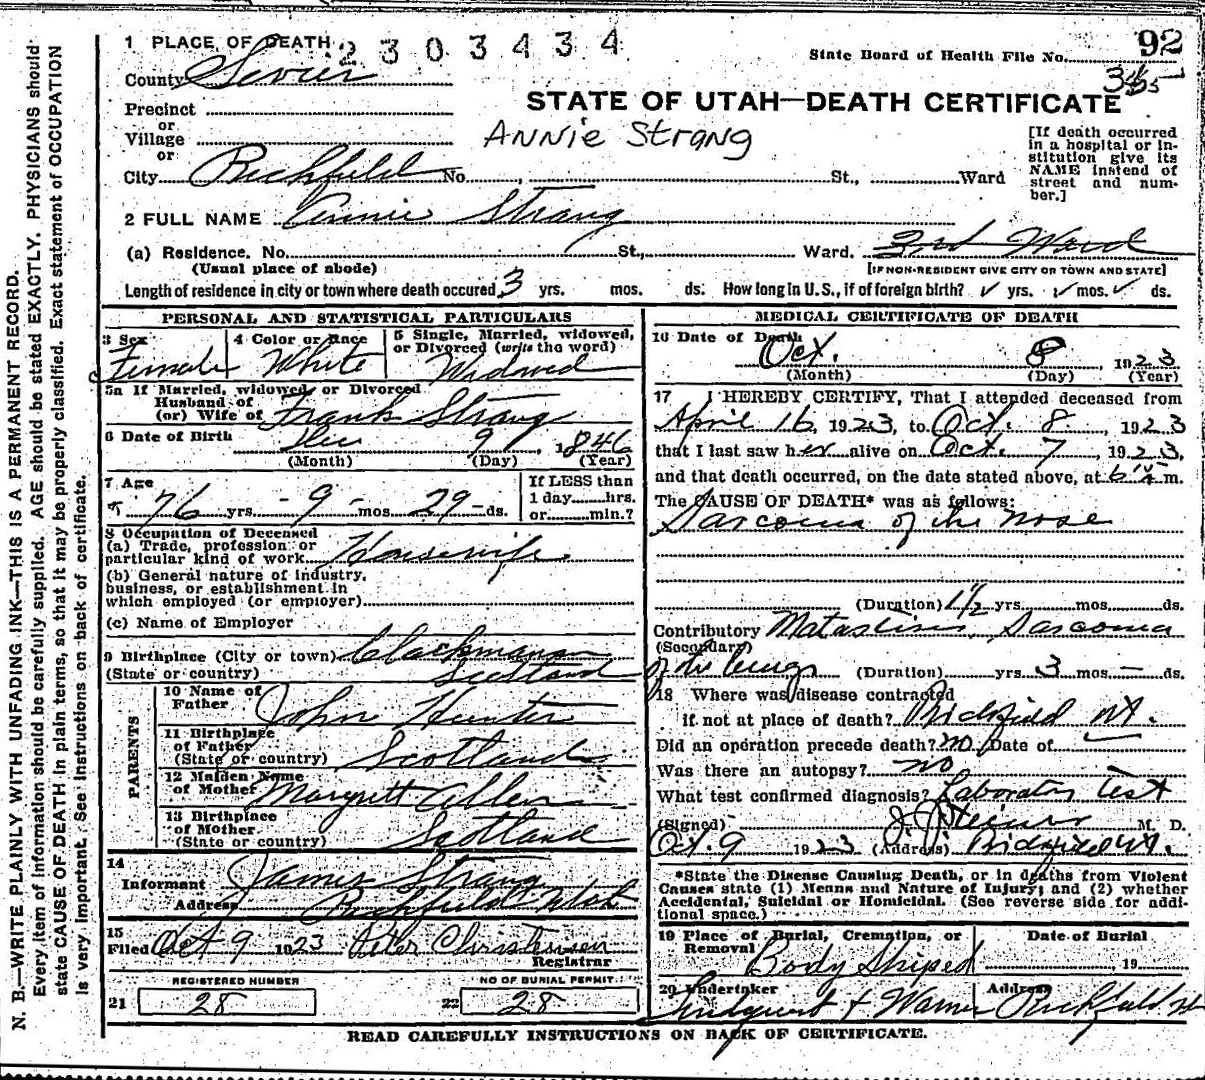 N. B.—WRITE PLAINLY WITH UNFADING INK—THIS IS A PERMANENT RECORD.
Every item of information should be carefully supplied. AGE should be stated EXACTLY. PHYSICIANS should
state CAUSE OF DEATH in plain terms, so that it may be properly classified. Exact statement of OCCUPATION
is very important. See instructions on back of certificate.
1 PLACE OF DEATH
2303434
State Board of Health File No. 92
County Sevier
STATE OF UTAH—DEATH CERTIFICATE
Precinct
or
Village
or
Annie Strang
[If death occurred
in a hospital or in-
stitution give its
NAME instead of
street and num-
ber.]
City Richfield No. , St., Ward
2 FULL NAME Annie Strang
(a) Residence. No. St., Ward. 3rd Ward
(Usual place of abode) [IF NON-RESIDENT GIVE CITY OR TOWN AND STATE]
Length of residence in city or town where death occured 3 yrs. mos. ds. How long in U.S., if of foreign birth? ✓ yrs. ✓ mos. ✓ ds.
PERSONAL AND STATISTICAL PARTICULARS
3 Sex
Female
4 Color or Race
White
5 Single, Married, widowed,
or Divorced (write the word)
Widowed
5a If Married, widowed or Divorced
Husband of
(or) Wife of Frank Strang
6 Date of Birth 9, 1846
(Month) (Day) (Year)
7 Age
76 yrs. - 9 - mos. 29 - ds.
If LESS than
1 day hrs.
or min.?
8 Occupation of Deceased
(a) Trade, profession or
particular kind of work Housewife
(b) General nature of industry,
business, or establishment in
which employed (or employer)
(c) Name of Employer
9 Birthplace (City or town) Clackmanan
(State or country) Scotland
PARENTS
10 Name of
Father John Hunter
11 Birthplace
of Father
(State or country) Scotland
12 Maiden Name
of Mother Margrett Allen
13 Birthplace
of Mother
(State or country) Scotland
14
Informant James Strang
Address Richfield Utah
15
Filed Oct 9 1923 Peter Christensen
Registrar
REGISTERED NUMBER
21 28
NO OF BURIAL PERMIT
22 28
MEDICAL CERTIFICATE OF DEATH
16 Date of Death
Oct. 8, 1923
(Month) (Day) (Year)
17 I HEREBY CERTIFY, That I attended deceased from
April 16, 1923, to Oct. 8, 1923
that I last saw her alive on Oct. 7, 1923,
and that death occurred, on the date stated above, at m.
The CAUSE OF DEATH* was as follows:
Sarcoma of the nose
(Duration) 1½ yrs. mos. ds.
Contributory Matastisis, Sarcoma
(Secondary)
of the lungs (Duration) yrs. 3 mos. — ds.
18 Where was disease contracted
if not at place of death? Richfield Ut.
Did an operation precede death? no Date of
Was there an autopsy? no
What test confirmed diagnosis? Laboratory test
(Signed) M. D.
Oct. 9 1923 (Address) Richfield Ut.
*State the Disease Causing Death, or in deaths from Violent
Causes state (1) Means and Nature of Injury; and (2) whether
Accidental, Suicidal or Homicidal. (See reverse side for addi-
tional space.)
19 Place of Burial, Cremation, or
Removal
Body Shiped
Date of Burial
19
20 Undertaker
& Warner
Address
Richfield Ut
READ CAREFULLY INSTRUCTIONS ON BACK OF CERTIFICATE.